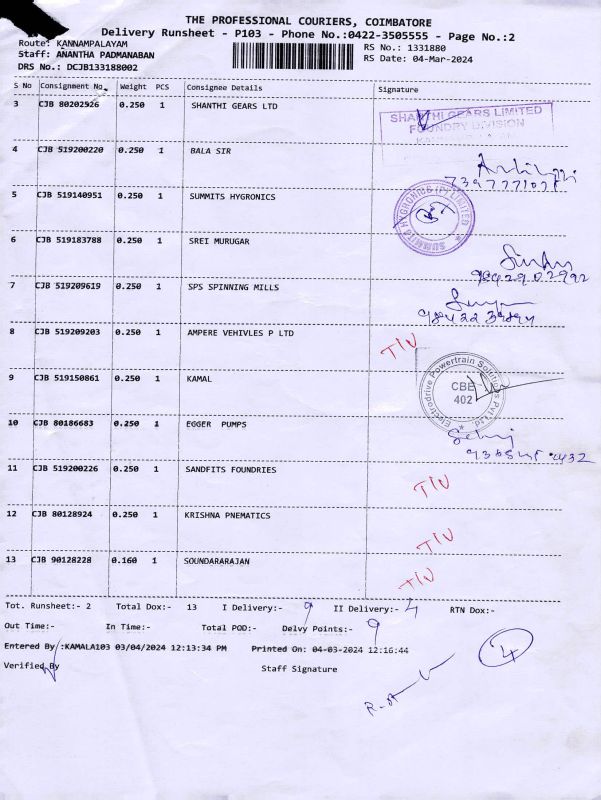 THE PROFESSIONAL COURIERS, COIMBATORE
Delivery Runsheet - P103 - Phone No.:0422-3505555 - Page No.:2
Route: KANNAMPALAYAM RS No.: 1331880
Staff: ANANTHA PADMANABAN RS Date: 04-Mar-2024
DRS No.: DCJB133188002
S No Consignment No. Weight PCS Consignee Details Signature
3 CJB 80202926 0.250 1 SHANTHI GEARS LTD
SHANTHI GEARS LIMITED
FOUNDRY DIVISION
4 CJB 519200220 0.250 1 BALA SIR
5 CJB 519140951 0.250 1 SUMMITS HYGRONICS
SUMMITS HYGRONICS (P) LIMITED
6 CJB 519183788 0.250 1 SREI MURUGAR
7 CJB 519209619 0.250 1 SPS SPINNING MILLS
8 CJB 519209203 0.250 1 AMPERE VEHIVLES P LTD
T/N
9 CJB 519150861 0.250 1 KAMAL
Electrodrive Powertrain Solutions Pvt Ltd
CBE
402
10 CJB 80186683 0.250 1 EGGER PUMPS
11 CJB 519200226 0.250 1 SANDFITS FOUNDRIES
T/N
12 CJB 80128924 0.250 1 KRISHNA PNEMATICS
T/N
13 CJB 90128228 0.160 1 SOUNDARARAJAN
T/N
Tot. Runsheet:- 2 Total Dox:- 13 I Delivery:- 9 II Delivery:- 4 RTN Dox:-
Out Time:- In Time:- Total POD:- Delvy Points:- 9
Entered By :KAMALA103 03/04/2024 12:13:34 PM Printed On: 04-03-2024 12:16:44
4
Verified By Staff Signature